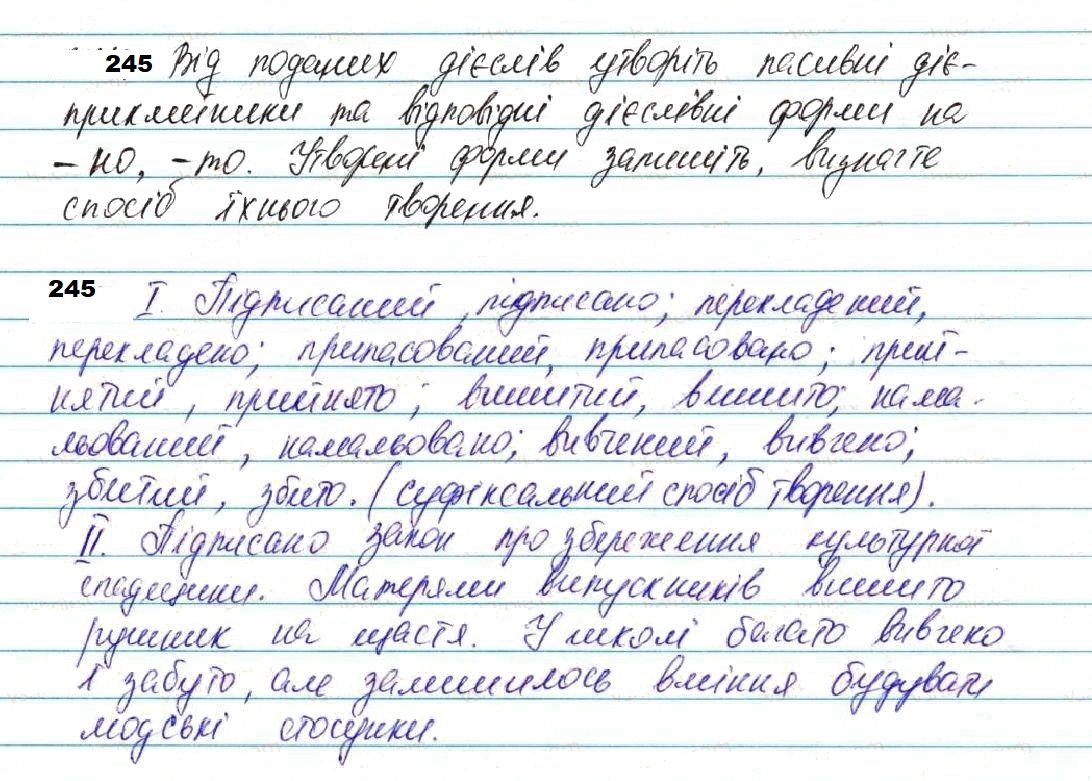 245 Від поданих дієслів утворіть пасивні діє-
прикметники та відповідні дієслівні форми на
-но, -то. Утворені форми запишіть, визначте
спосіб їхнього творення.
245 І. Підписаний, підписано; перекладений,
перекладено; припасований, припасовано; прий-
нятий, прийнято; вишитий, вишито; нама-
льований, намальовано; вивчений, вивчено;
збитий, збито. (суфіксальний спосіб творення).
ІІ. Підписано закон про збереження культурної
спадщини. Матерями випускників вишито
рушник на щастя. У школі багато вивчено
і забуто, але залишилось вміння будувати
людські стосунки.